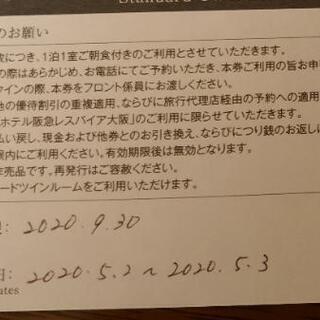 のお願い
につき、1泊1室ご朝食付きのご利用とさせていただきます。
の際はあらかじめ、お電話にてご予約いただき、本券ご利用の旨お申
ウインの際、本券をフロント係員にお渡しください。
他の優待割引の重複適用、ならびに旅行代理店経由の予約への適用
ホテル阪急レスパイア大阪」のご利用に限らせていただきます。
払い戻し、現金および他券とのお引き換え、ならびにつり銭のお返しに
限内にご利用ください。有効期限後は無効となります。
売品です。再発行はご容赦ください。
ードツインルームをご利用いただけます。
2020.9.30
日: 2020.5.2 〜 2020.5.3
ates